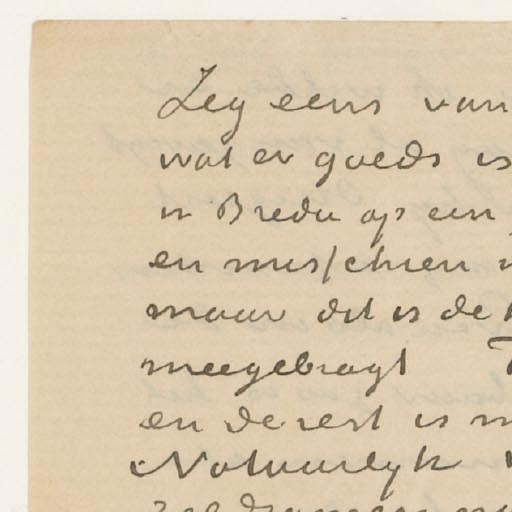 Zeg eens van
wat er goeds is
in Breda op een
en misschien
maar dit is de
meegebragt
en de rest is
Natuurlyk